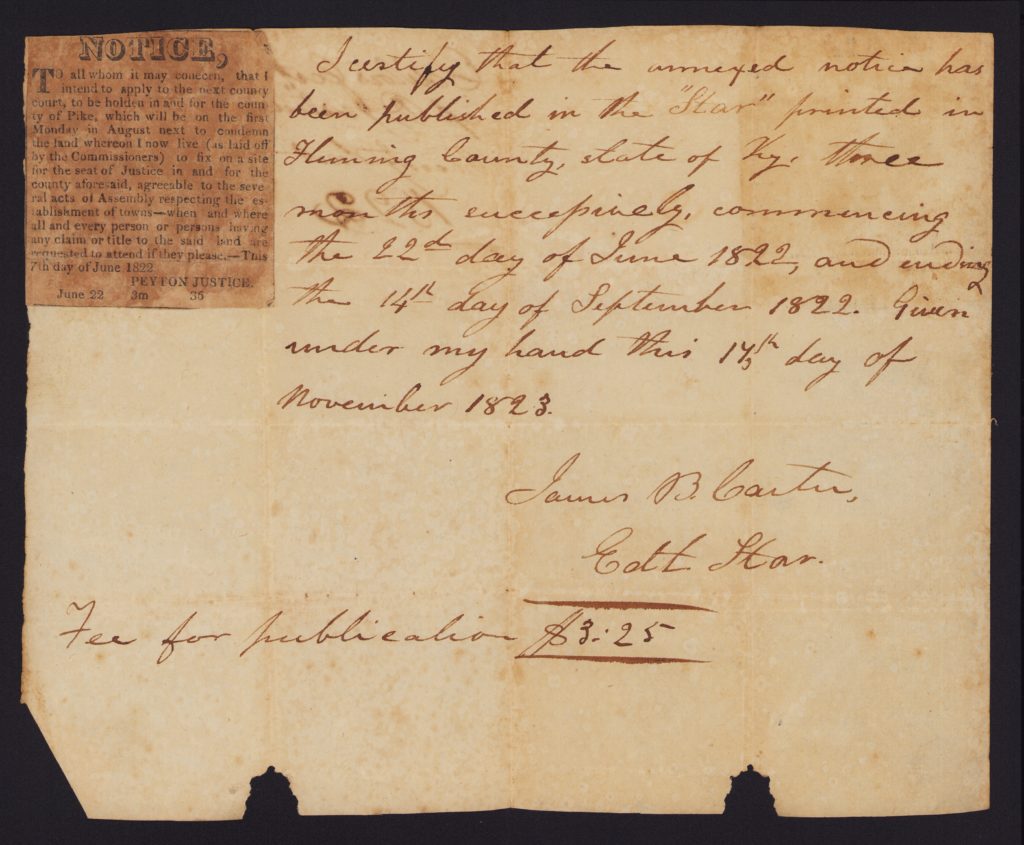 NOTICE,
TO all whom it may concern, that I
intend to apply to the next county
court, to be holden in and for the coun
ty of Pike, which will be on the first
Monday in August next to condemn
the land whereon I now live (as laid off
by the Commissioners) to fix on a site
for the seat of Justice in and for the
county aforesaid, agreeable to the seve
ral acts of Assembly respecting the es-
tablishment of towns—when and where
all and every person or persons having
any claim or title to the said land are
requested to attend if they please.—This
7th day of June 1822.
PEYTON JUSTICE.
June 22 3m 35
I certify that the annexed notice has
been published in the "Star" printed in
Fleming County, state of Ky. three
months successively, commencing
the 22d day of June 1822, and ending
the 14th day of September 1822. Given
under my hand this th day of
November 1823.
James B. Carter,
Edt Star.
Fee for publication $3:25